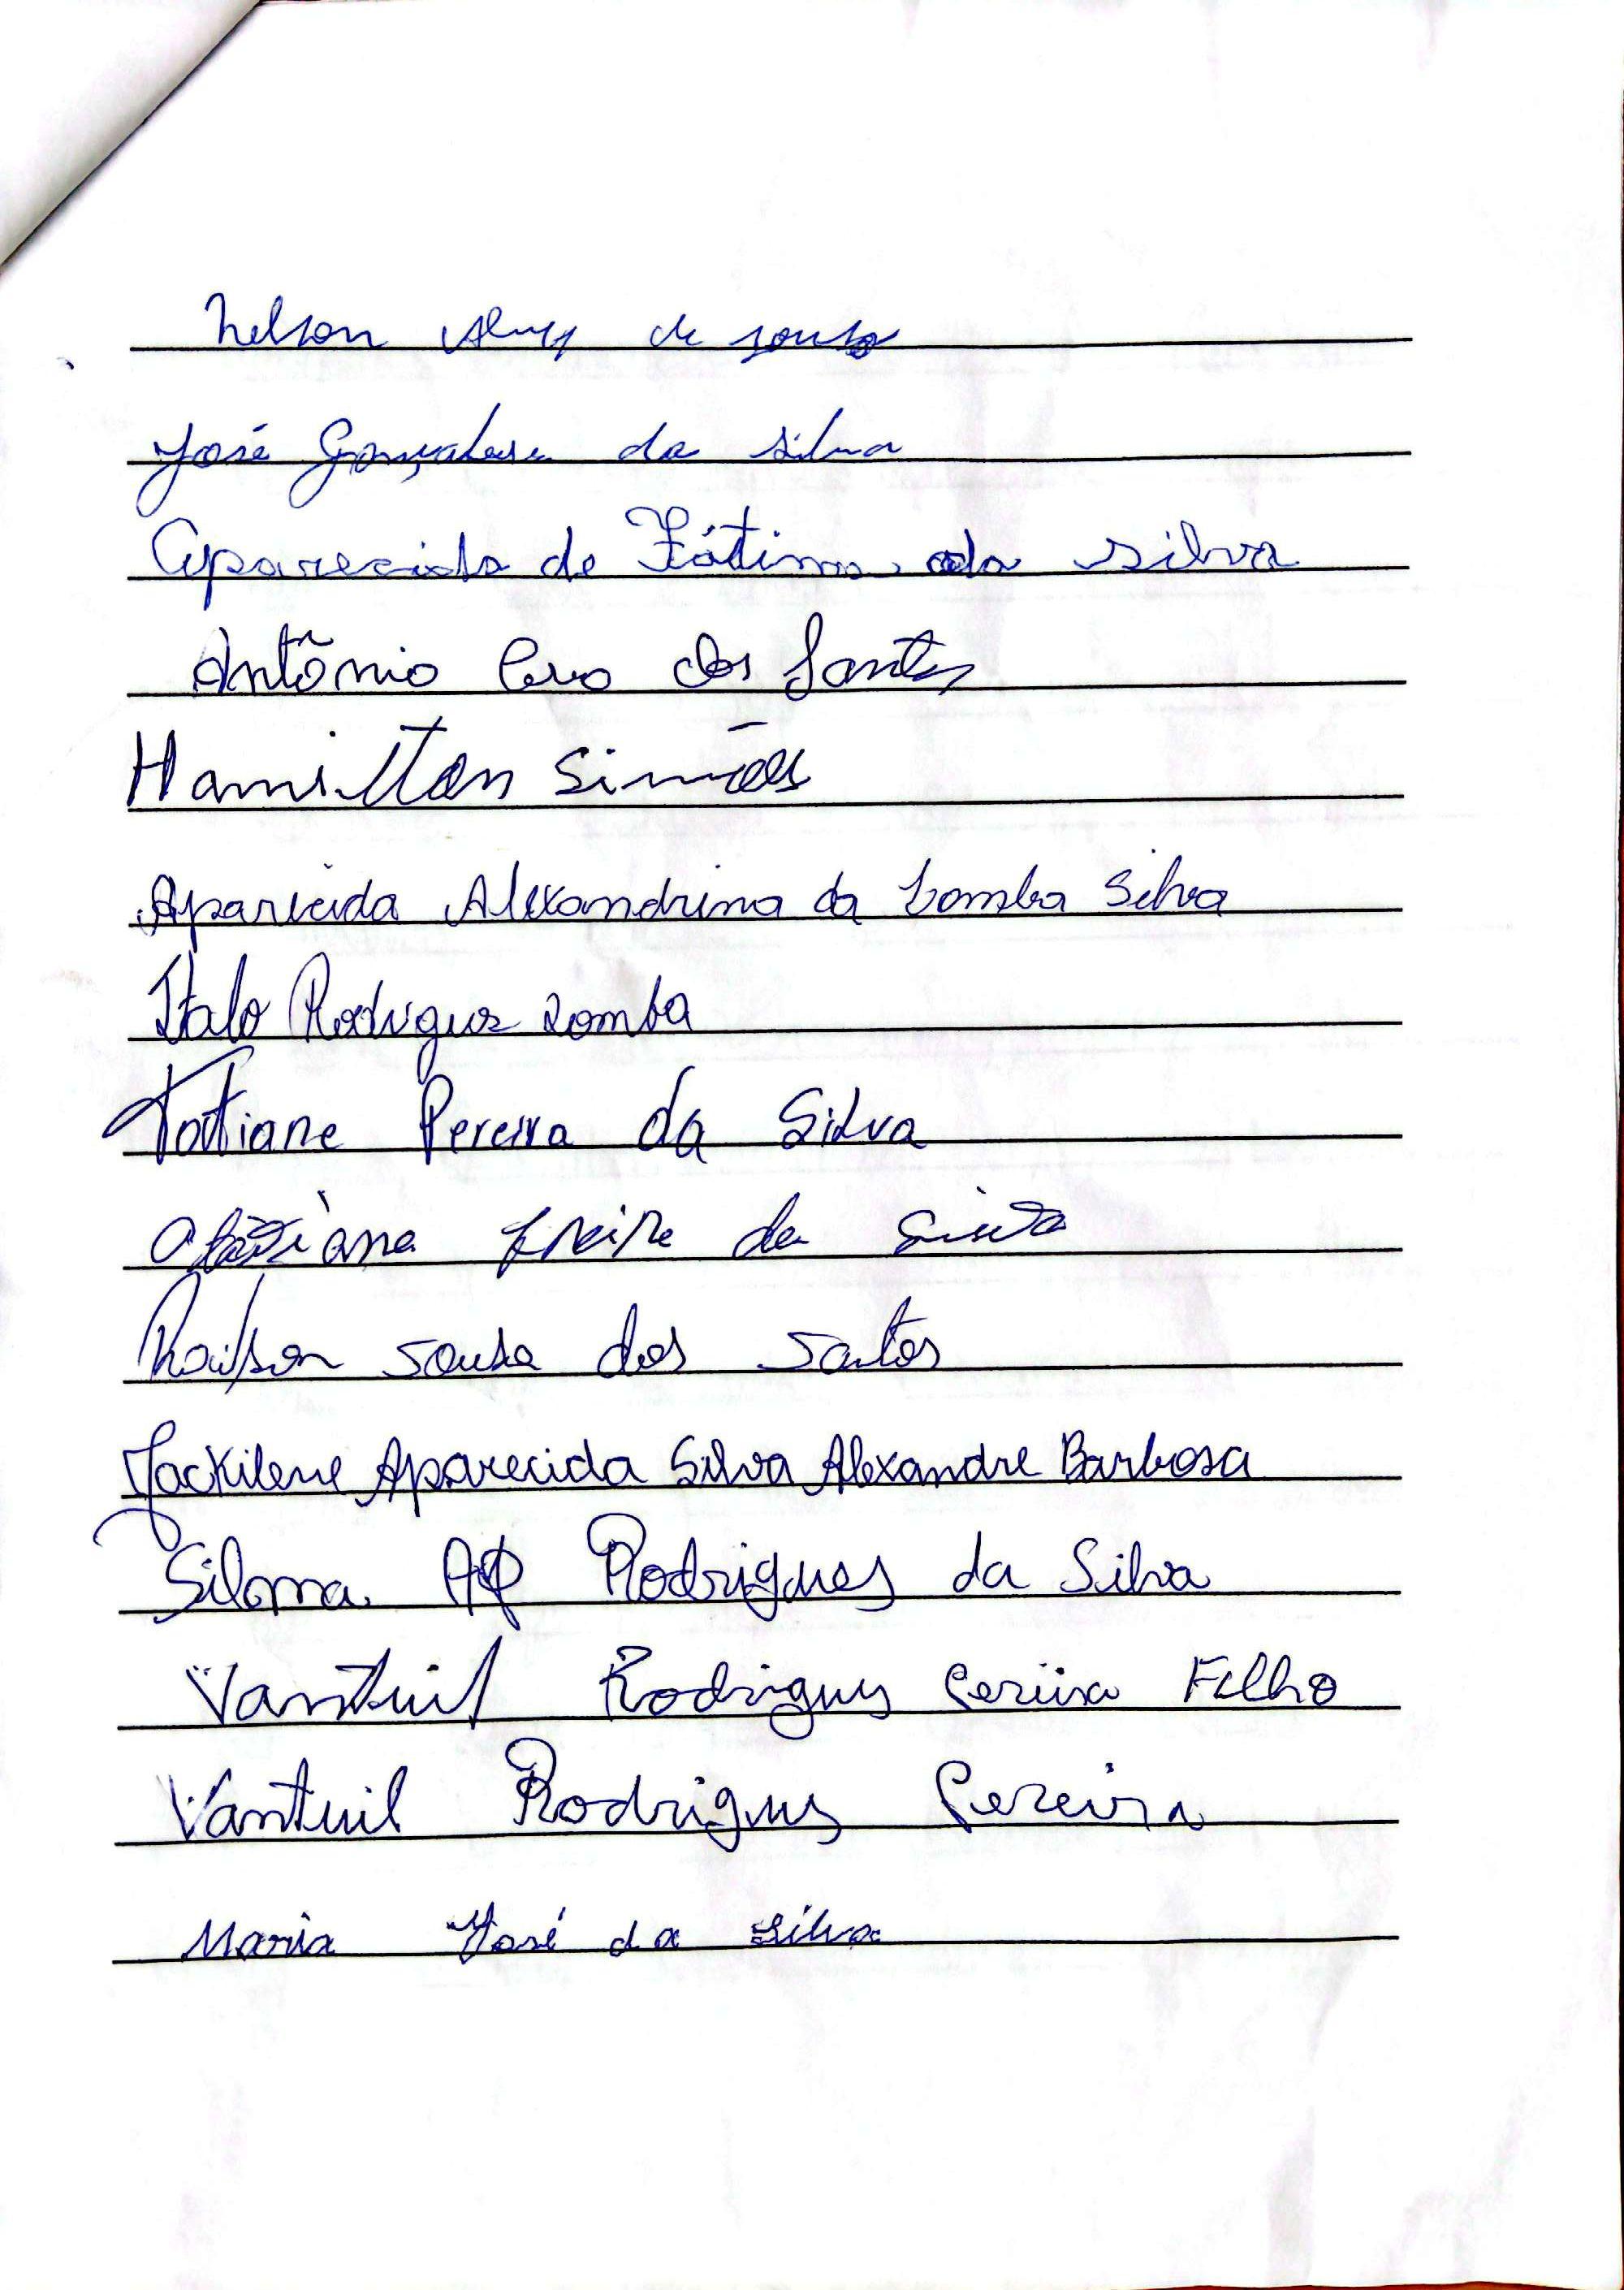 Nelson Alves de Souza
José Gonçalves da Silva
Aparecida de Fátima da Silva
Antônio dos Santos
Hamilton Simões
Aparecida Alexandrina da Lomba Silva
Italo Rodrigues Lomba
Tatiane Pereira da Silva
Freire da Silva
Railson Sousa dos Santos
Jackilene Aparecida Silva Alexandre Barbosa
Ap Rodrigues da Silva
Vantuil Rodrigues Pereira Filho
Vantuil Rodrigues Pereira
Maria José da Silva